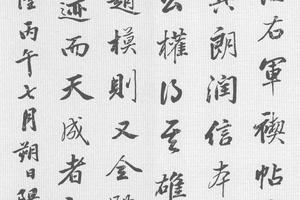 右軍禊帖
朗潤信本
公權得其雄
趙模則又全
迹而天成者
隆丙午七月朔日